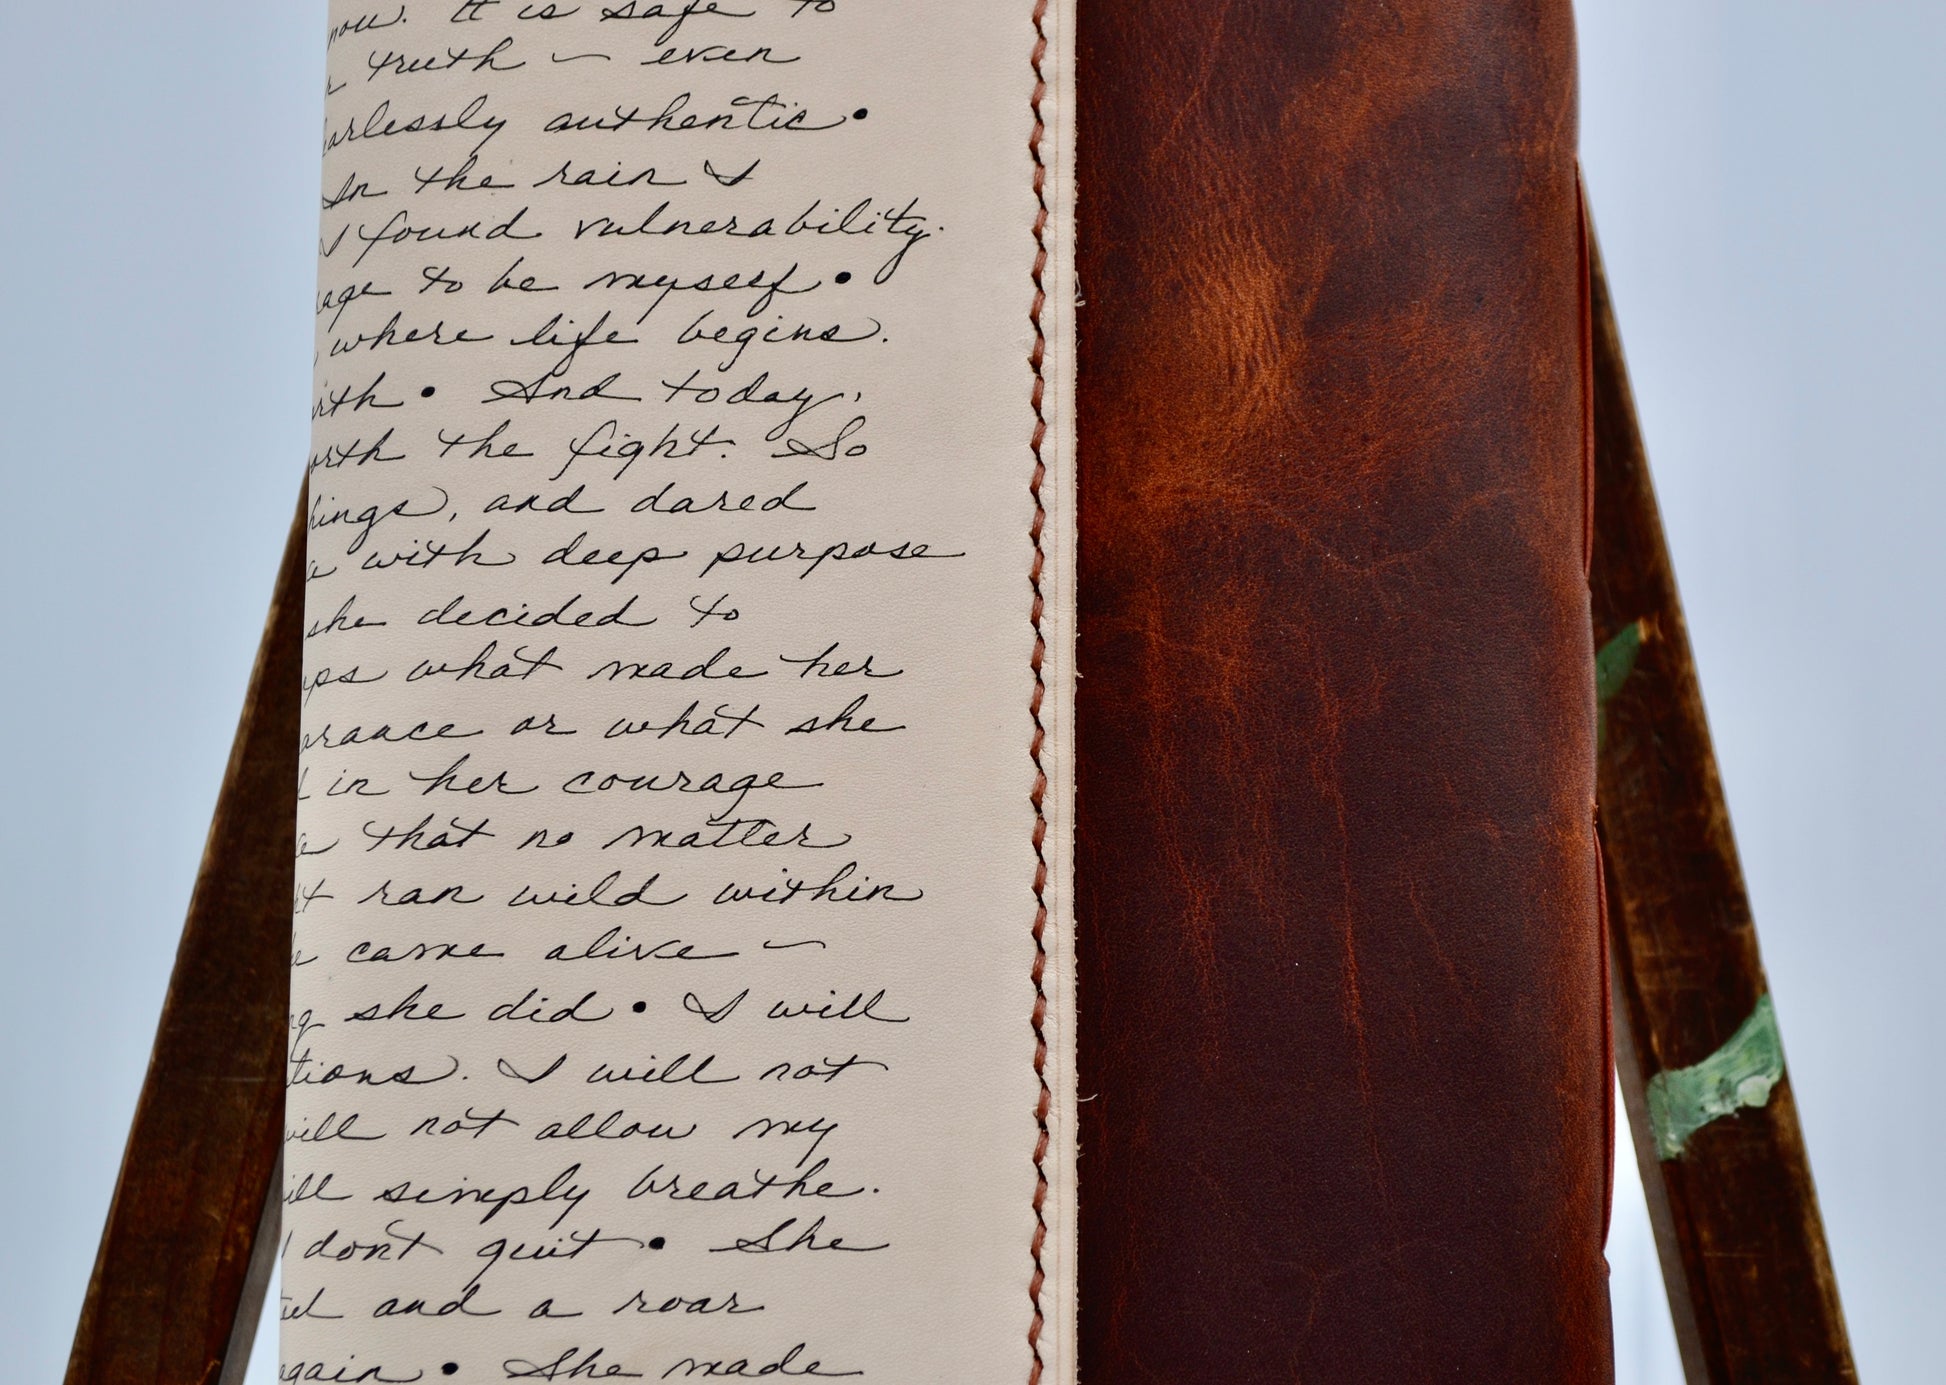 now. It is safe to
truth — even
earlessly authentic •
In the rain I
I found vulnerability.
age to be myself •
where life begins.
rth • And today,
orth the fight. So
hings, and dared
a with deep purpose
she decided to
ps what made her
arance or what she
in her courage
that no matter
ran wild within
came alive —
she did • I will
tions. I will not
will not allow my
ill simply breathe.
I don't quit • She
and a roar
again • She made